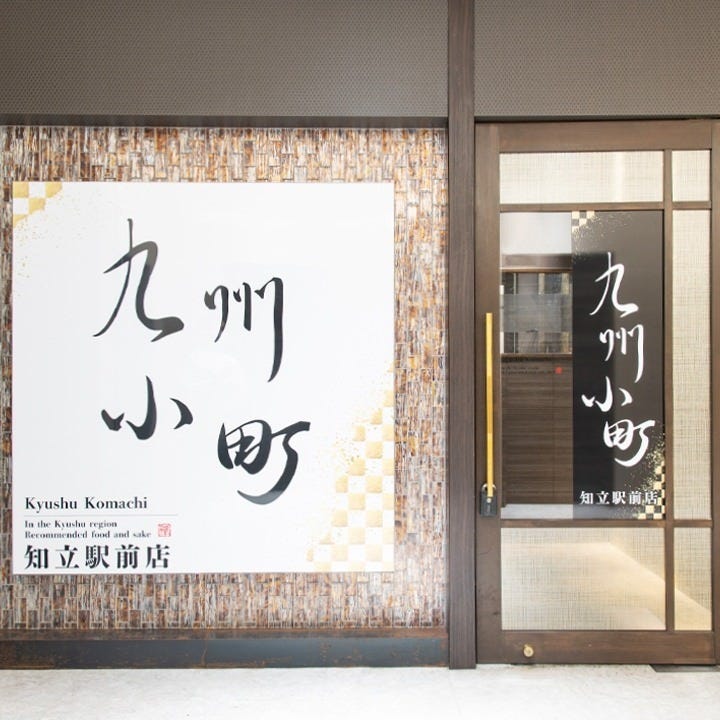 九州
小町
Kyushu Komachi
In the Kyushu region
Recommended food and sake
知立駅前店
九州小町
知立駅前店